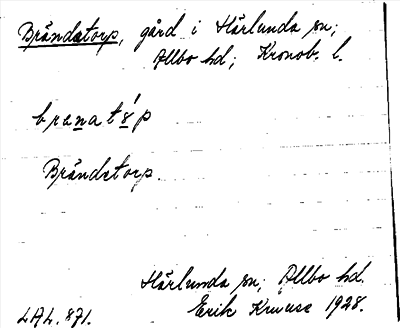 Brändstorp, gård i Härlunda sn;
Allbo hd; Kronob. l.
Brändstorp.
Härlunda sn; Allbo hd.
LAL. 871.
Erik Kruuse 1928.